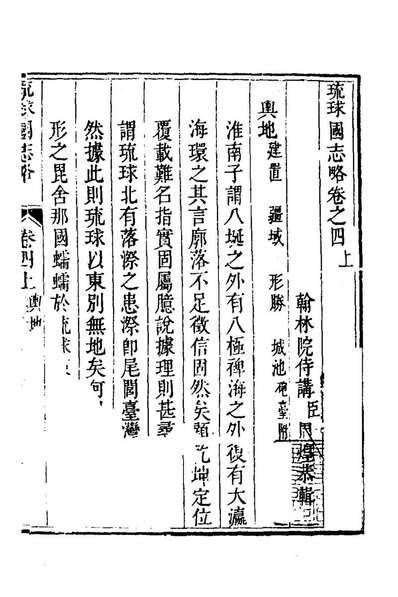 琉球國志略卷之四上
翰林院侍講臣周煌恭輯
輿地 建置 疆域 形勝 城池
淮南子謂八埏之外有八極裨海之外復有大瀛
海環之其言廓落不足徵信固然矣顧乾坤定位
覆載難名指實固屬臆說據理則甚尋
謂琉球北有落漈之患漈卽尾閭臺灣
然據此則琉球以東別無地矣何
形之毘舍那國蠕蠕於琉球
琉球國志略 卷四上 輿地